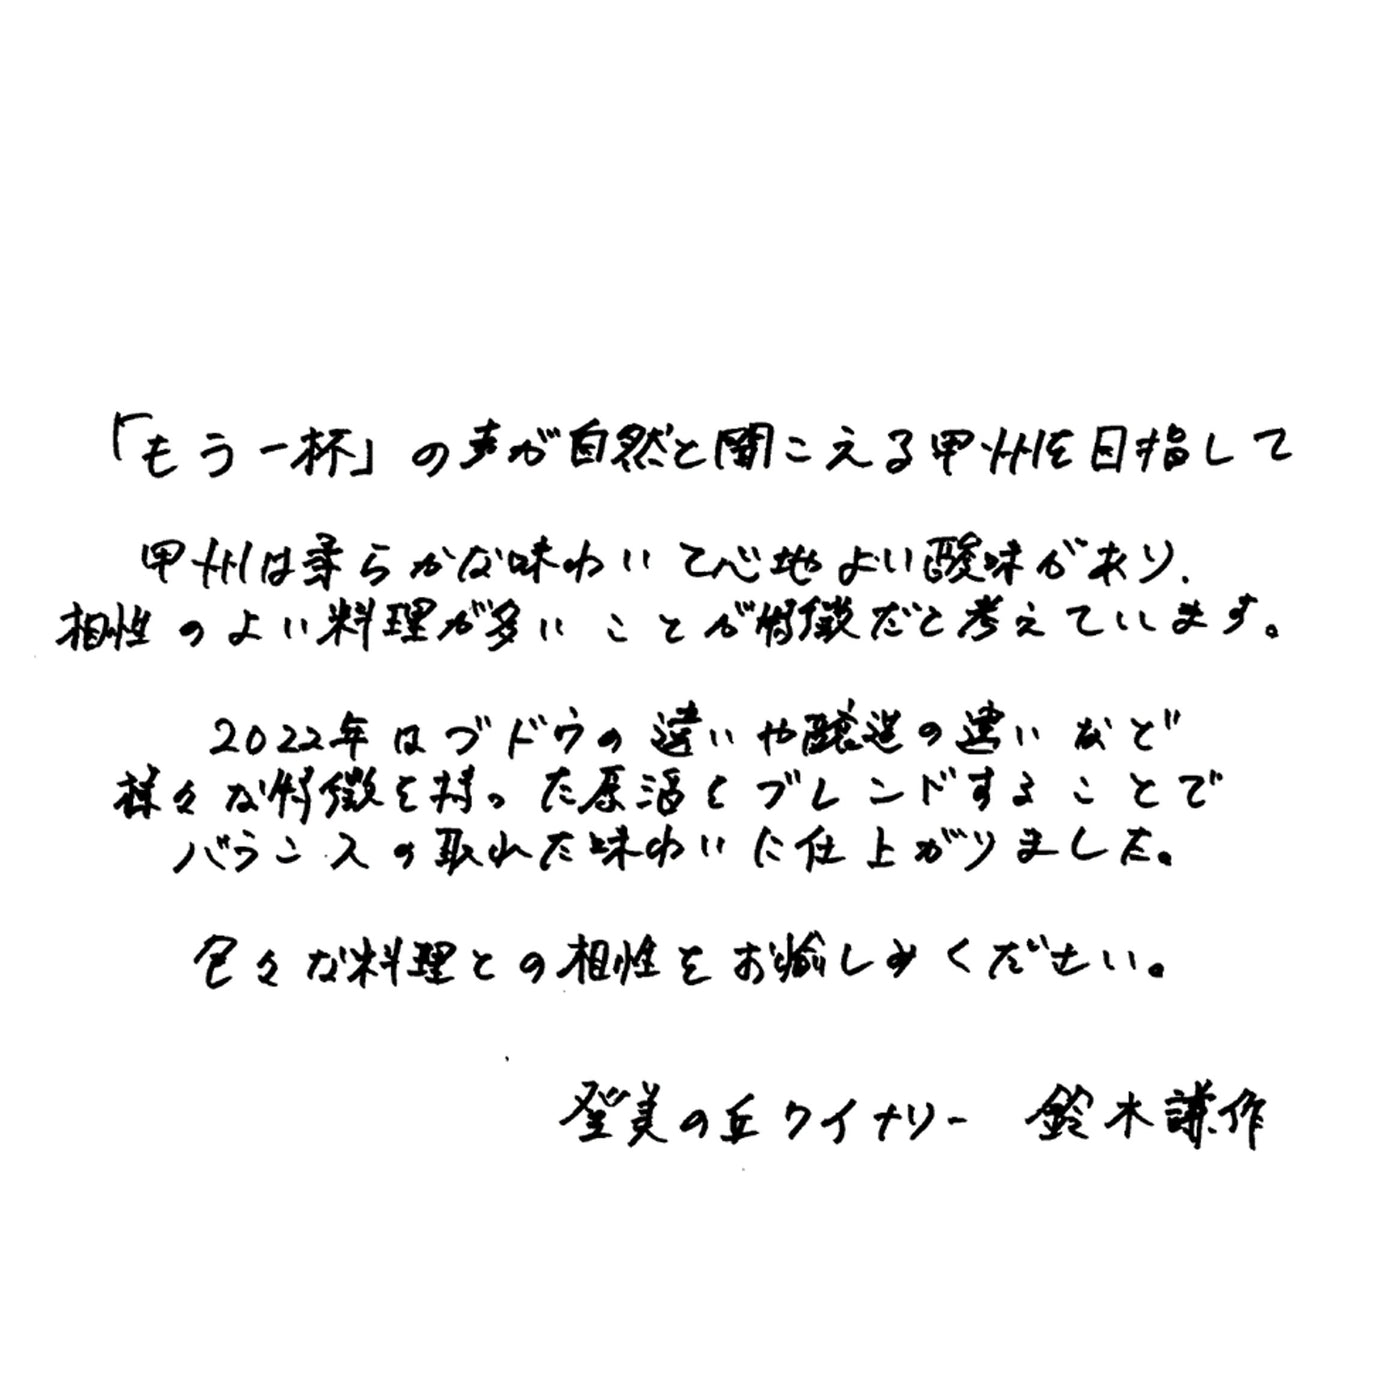 「もう一杯」の声が自然と聞こえる甲州を目指して
甲州は柔らかな味わいで心地よい酸味があり、
相性のよい料理が多いことが特徴だと考えています。
2022年はブドウの違いや醸造の違いなど
様々な特徴を持った原酒をブレンドすることで
バランスの取れた味わいに仕上がりました。
色々な料理との相性をお愉しみください。
登美の丘ワイナリー 鈴木謙作